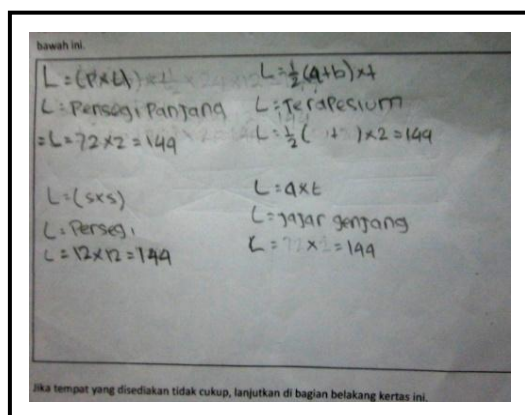 bawah ini.
L = (P x L)
L = Persegi Panjang
= L = 72 x 2 = 144
L = 1/2 (a + b) x t
L = Terapesium
L = 1/2 ( ) x 2 = 144
L = (s x s)
L = Persegi
L = 12 x 12 = 144
L = a x t
L = Jajar genjang
L = 72 x 2 = 144
Jika tempat yang disediakan tidak cukup, lanjutkan di bagian belakang kertas ini.